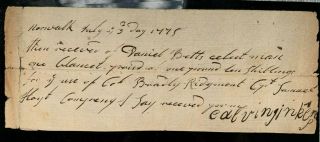 Norwalk July ye 3d Day 1775
then receved of Daniel Betts select man
one blancet prised at one pound ten shillings
for ye use of Col Bradly Regment Cpt Samuel
Hoyt Compeney I Say receved
Calvin Jinkins